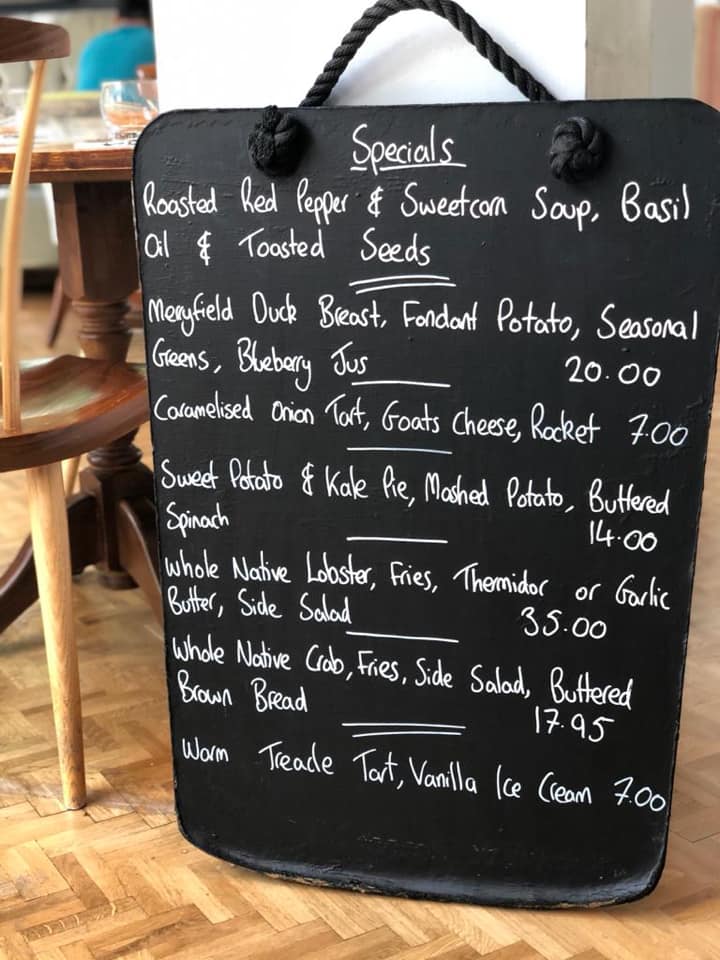 Specials
Roasted Red Pepper & Sweetcorn Soup, Basil
Oil & Toasted Seeds
Merryfield Duck Breast, Fondant Potato, Seasonal
Greens, Blueberry Jus 20.00
Caramelised Onion Tart, Goats Cheese, Rocket 7.00
Sweet Potato & Kale Pie, Mashed Potato, Buttered
Spinach 14.00
Whole Native Lobster, Fries, Thermidor or Garlic
Butter, Side Salad 35.00
Whole Native Crab, Fries, Side Salad, Buttered
Brown Bread 17.95
Warm Treacle Tart, Vanilla Ice Cream 7.00